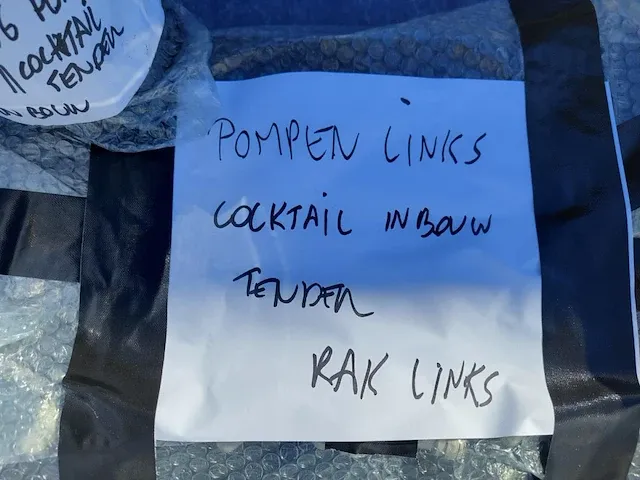 COCKTAIL
TENDER
INBOUW
POMPEN LINKS
COCKTAIL INBOUW
TENDER
RAK LINKS